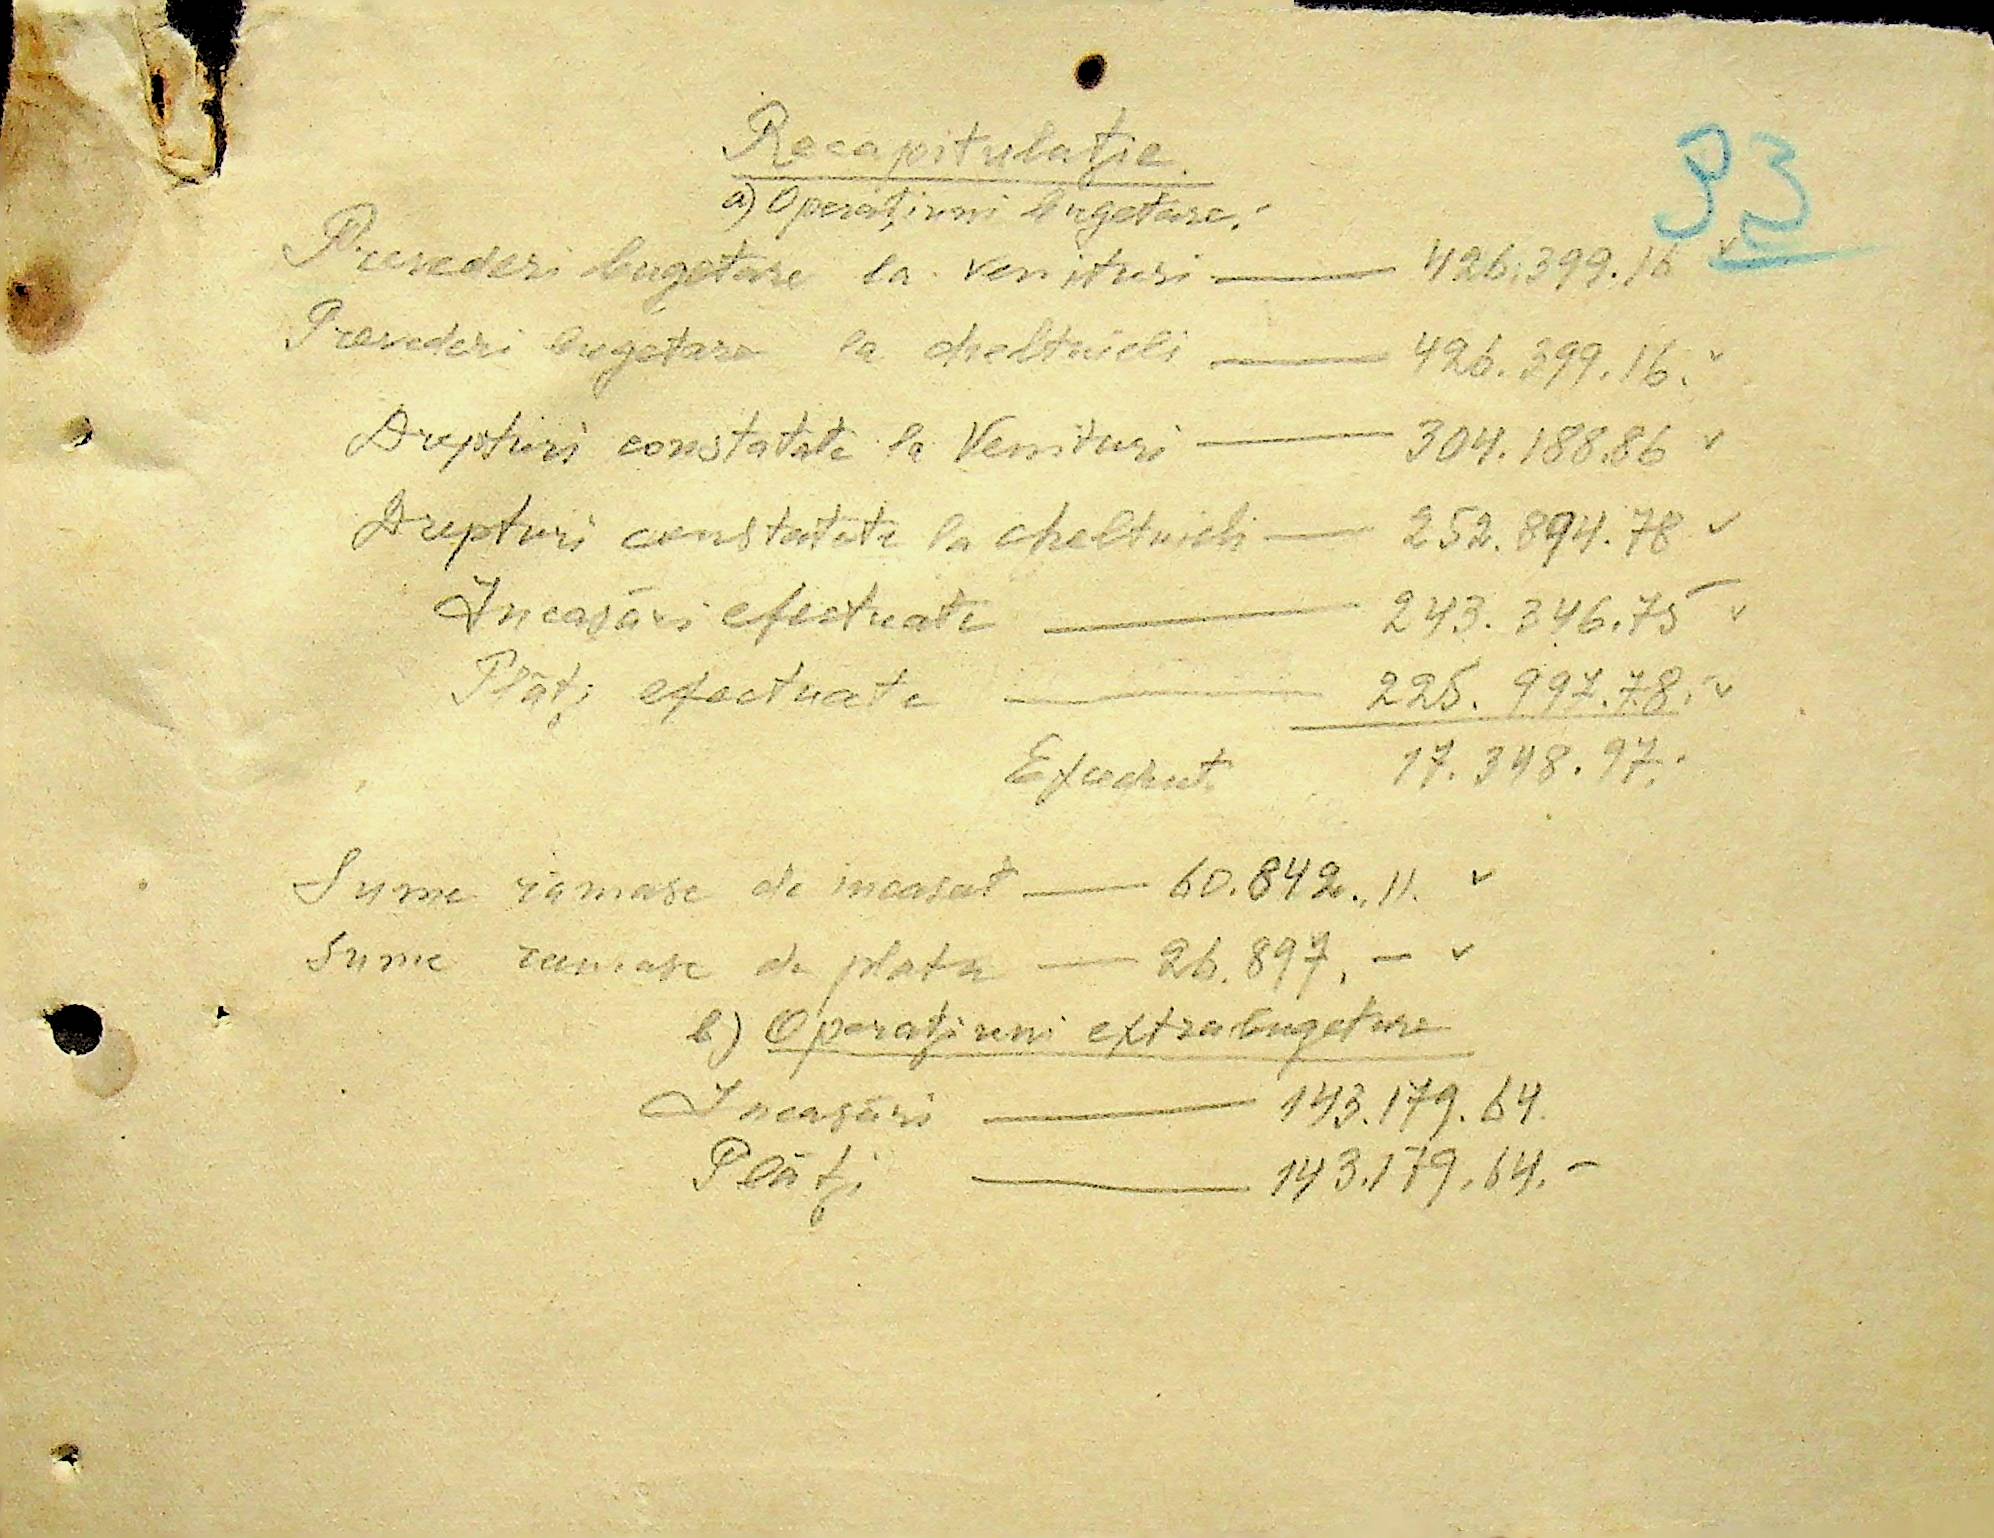 Recapitulaţie.
93
a) Operaţiuni bugetare:
Prevederi bugetare la venituri — 426.399.16 ✓
Prevederi bugetare la cheltuieli — 426.399.16. ✓
Drepturi constatate la Venituri — 304.188.86 ✓
Drepturi constatate la cheltuieli — 252.894.78 ✓
Încasări efectuate — 243.346.75 ✓
Plăţi efectuate — 225.997.78. ✓
Excedent 17.348.97.
Sume rămase de incasat — 60.842.11. ✓
Sume ramase de plata — 26.897.— ✓
b) Operaţiuni extrabugetare
Încasări — 143.179.64.
Plăţi — 143.179.64.—